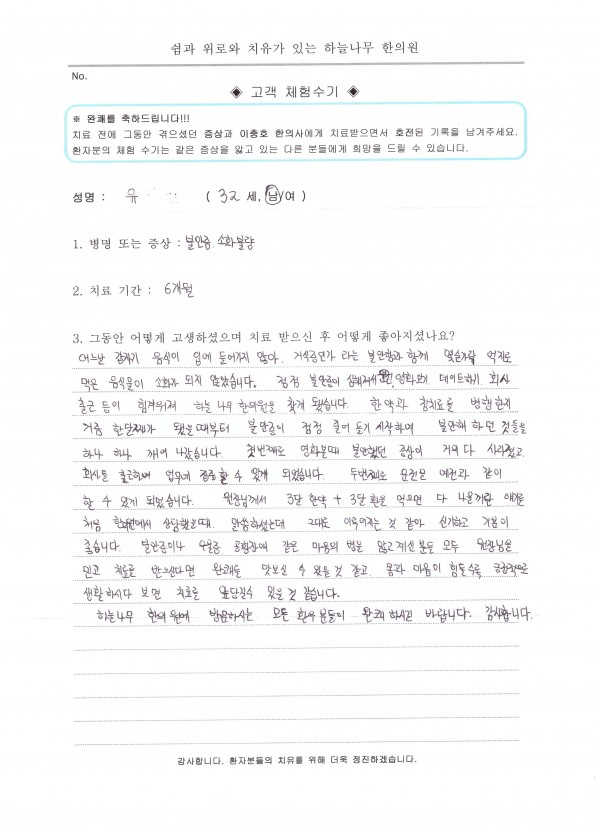 쉼과 위로와 치유가 있는 하늘나무 한의원
No.
◈ 고객 체험수기 ◈
※ 완쾌를 축하드립니다!!!
치료 전에 그동안 겪으셨던 증상과 이충호 한의사에게 치료받으면서 호전된 기록을 남겨주세요.
환자분의 체험 수기는 같은 증상을 앓고 있는 다른 분들에게 희망을 드릴 수 있습니다.
성명 : 유 ( 32 세, 남/여 )
1. 병명 또는 증상 : 불안증. 소화불량
2. 치료 기간 : 6개월
3. 그동안 어떻게 고생하셨으며 치료 받으신 후 어떻게 좋아지셨나요?
어느날 갑자기 음식이 입에 들어가지 않다. 거식증인가 라는 불안함과 함께 몇숟가락 억지로
먹은 음식물이 소화가 되지 않았습니다. 점점 불안증이 심해져서 영화보기 데이트하기 회사
출근 등이 힘겨워져 하늘 나무 한의원을 찾게 됐습니다. 한약과 침치료를 병행한지
거즘 한달째가 됐을때부터 불안증이 점점 줄어 들기 시작하며 불안해 하던 것들을
하나 하나 깨어 나갔습니다. 첫번째로 영화볼때 불안했던 증상이 거의 다 사라졌고
회사를 출근하여 업무에 집중 할 수 있게 되었습니다. 두번째로 운전을 예전과 같이
할 수 있게 되었습니다. 원장님께서 3달 한약 + 3달 환을 먹으면 다 나을꺼란 얘기를
처음 한의원에서 상담했을때. 말씀하셨는데 그대로 이루어지는 것 같아 신기하고 기분이
좋습니다. 불안증이나 우울증 공황장애 같은 마음의 병을 앓고 계신 분들 모두 원장님을
믿고 치료를 받으신다면 완쾌를 맛보실 수 있을 것 같고. 몸과 마음이 힘들수록 긍정적으로
생활하시다 보면 치료를 앞당길수 있을 것 같습니다.
하늘나무 한의원에 방문하시는 모든 환우분들이 완쾌 하시길 바랍니다. 감사합니다.
감사합니다. 환자분들의 치유를 위해 더욱 정진하겠습니다.